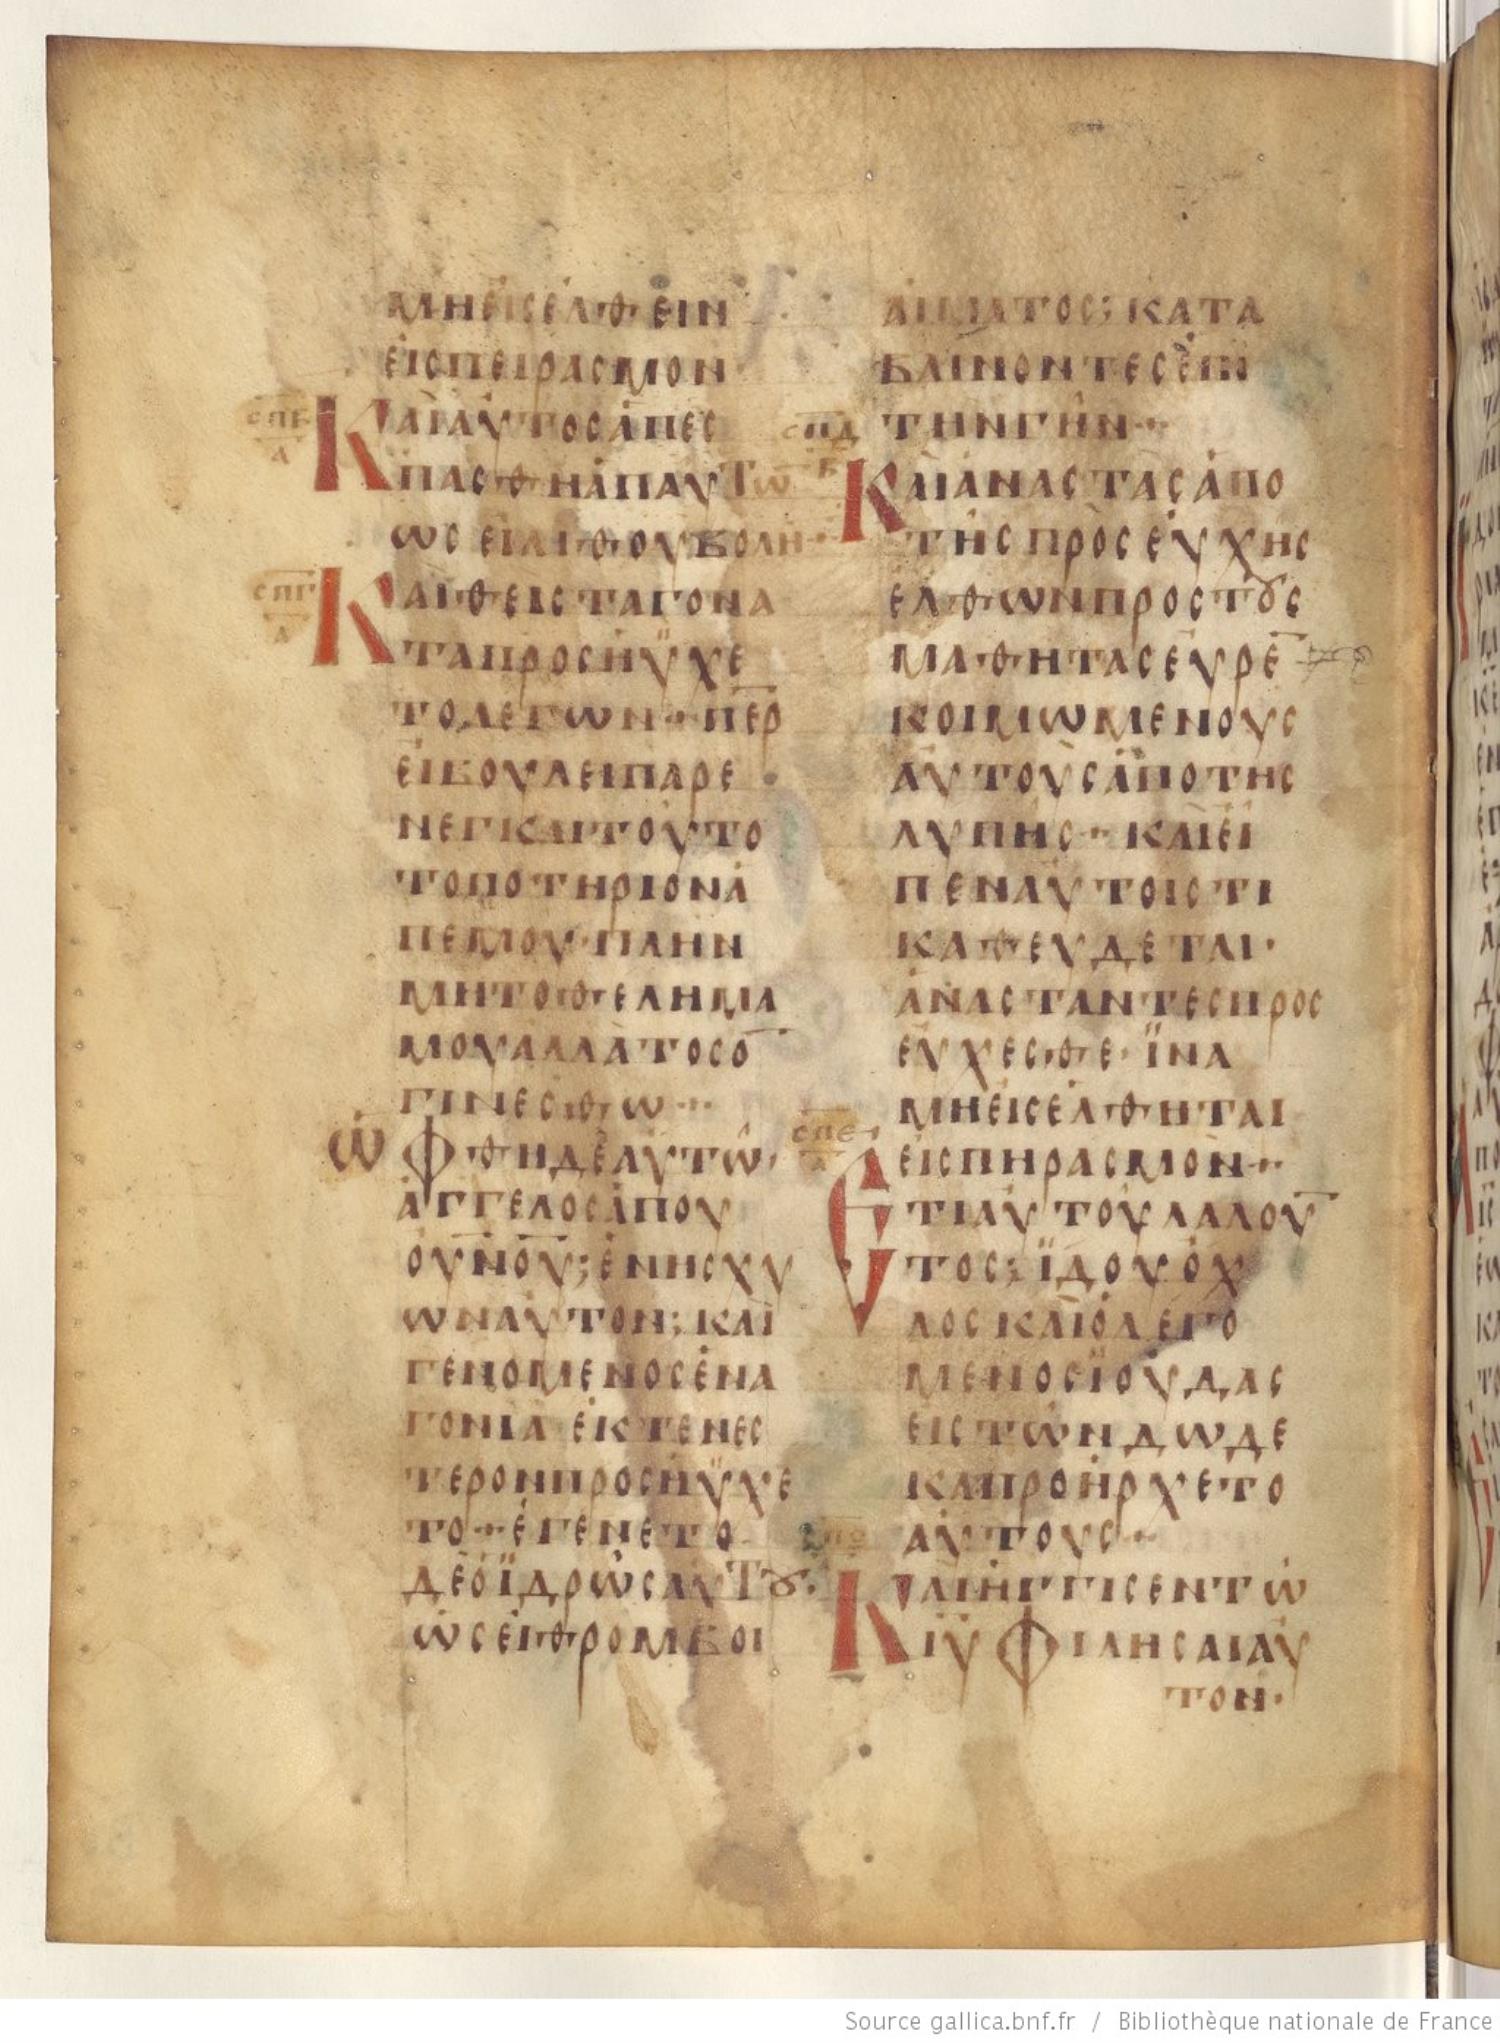 ΜΗΕΙCΕΛΘΕΙΝ
ΕΙCΠΕΙΡΑCΜΟΝ
CΠΒ
Α
ΚΑΙΑΥΤΟCΑΠΕC
ΠΑCΘΗΑΠΑΥΤω
ωC ΕΙΛΙΘΟΥΒΟΛΗ··
CΠΓ
Α
ΚΑΙΘΕΙCΤΑΓΟΝΑ
ΤΑΠΡΟCΗΥΧΕ
ΤΟΛΕΓωΝ··ΠΕΡ
ΕΙΒΟΥΛΕΙΠΑΡΕ
ΝΕΓΚΑΙΤΟΥΤΟ
ΤΟΠΟΤΗΡΙΟΝΑ
ΠΕΜΟΥ·ΠΛΗΝ
ΜΗΤΟΘΕΛΗΜΑ
ΜΟΥΑΛΛΑΤΟCΟ̅
ΓΙΝΕCΘω··
ωΦΘΗΔΕΑΥΤω·
ΑΓΓΕΛΟCΑΠΟΥ
ΟΥΝΟΥ;ΕΝΗCΧΥ
ωΝΑΥΤΟΝ;ΚΑΙ
ΓΕΝΟΜΕΝΟCΕΝΑ
ΓΟΝΙΑ ΕΚΤΕΝΕC
ΤΕΡΟΝΠΡΟCΗΥΧΕ
ΤΟ··ΕΓΕΝΕΤΟ
ΔΕΟΪΔΡωCΑΥΤȣ·
ωCΕΙΘΡΟΜΒΟΙ
ΑΙΜΑΤΟC;ΚΑΤΑ
ΒΑΙΝΟΝΤΕCΕΠΙ
ΤΗΝΓΗΝ··
CΠΔ
Β
ΚΑΙΑΝΑCΤΑCΑΠΟ
ΤΗCΠΡΟCΕΥΧΗC
ΕΛΘωΝΠΡΟCΤȣC
ΜΑΘΗΤΑCΕΥΡΕ̅
ΚΟΙΜωΜΕΝΟΥC
ΑΥΤΟΥCΑΠΟΤΗC
ΛΥΠΗC··ΚΑΙΕΙ
ΠΕΝΑΥΤΟΙCΤΙ
ΚΑΘΕΥΔΕΤΑΙ·
ΑΝΑCΤΑΝΤΕCΠΡΟC
ΕΥΧΕCΘΕ·ΪΝΑ
ΜΗΕΙCΕΛΘΗΤΑΙ
ΕΙCΠΗΡΑCΜΟΝ··
CΠΕ
Α
ΕΤΙΑΥΤΟΥΛΑΛΟΥ̅
ΤΟC;ΪΔΟΥΟΧ
ΛΟCΚΑΙΟΛΕΓΟ
ΜΕΝΟCΪΟΥΔΑC
ΕΙCΤωΝΔωΔΕ
ΚΑΠΡΟΗΡΧΕΤΟ
ΑΥΤΟΥC··
ΚΑΙΗΓΓΙCΕΝΤω
ΙΥ̅ΦΙΛΗCΑΙΑΥ
ΤΟΝ·
Source gallica.bnf.fr / Bibliothèque nationale de France